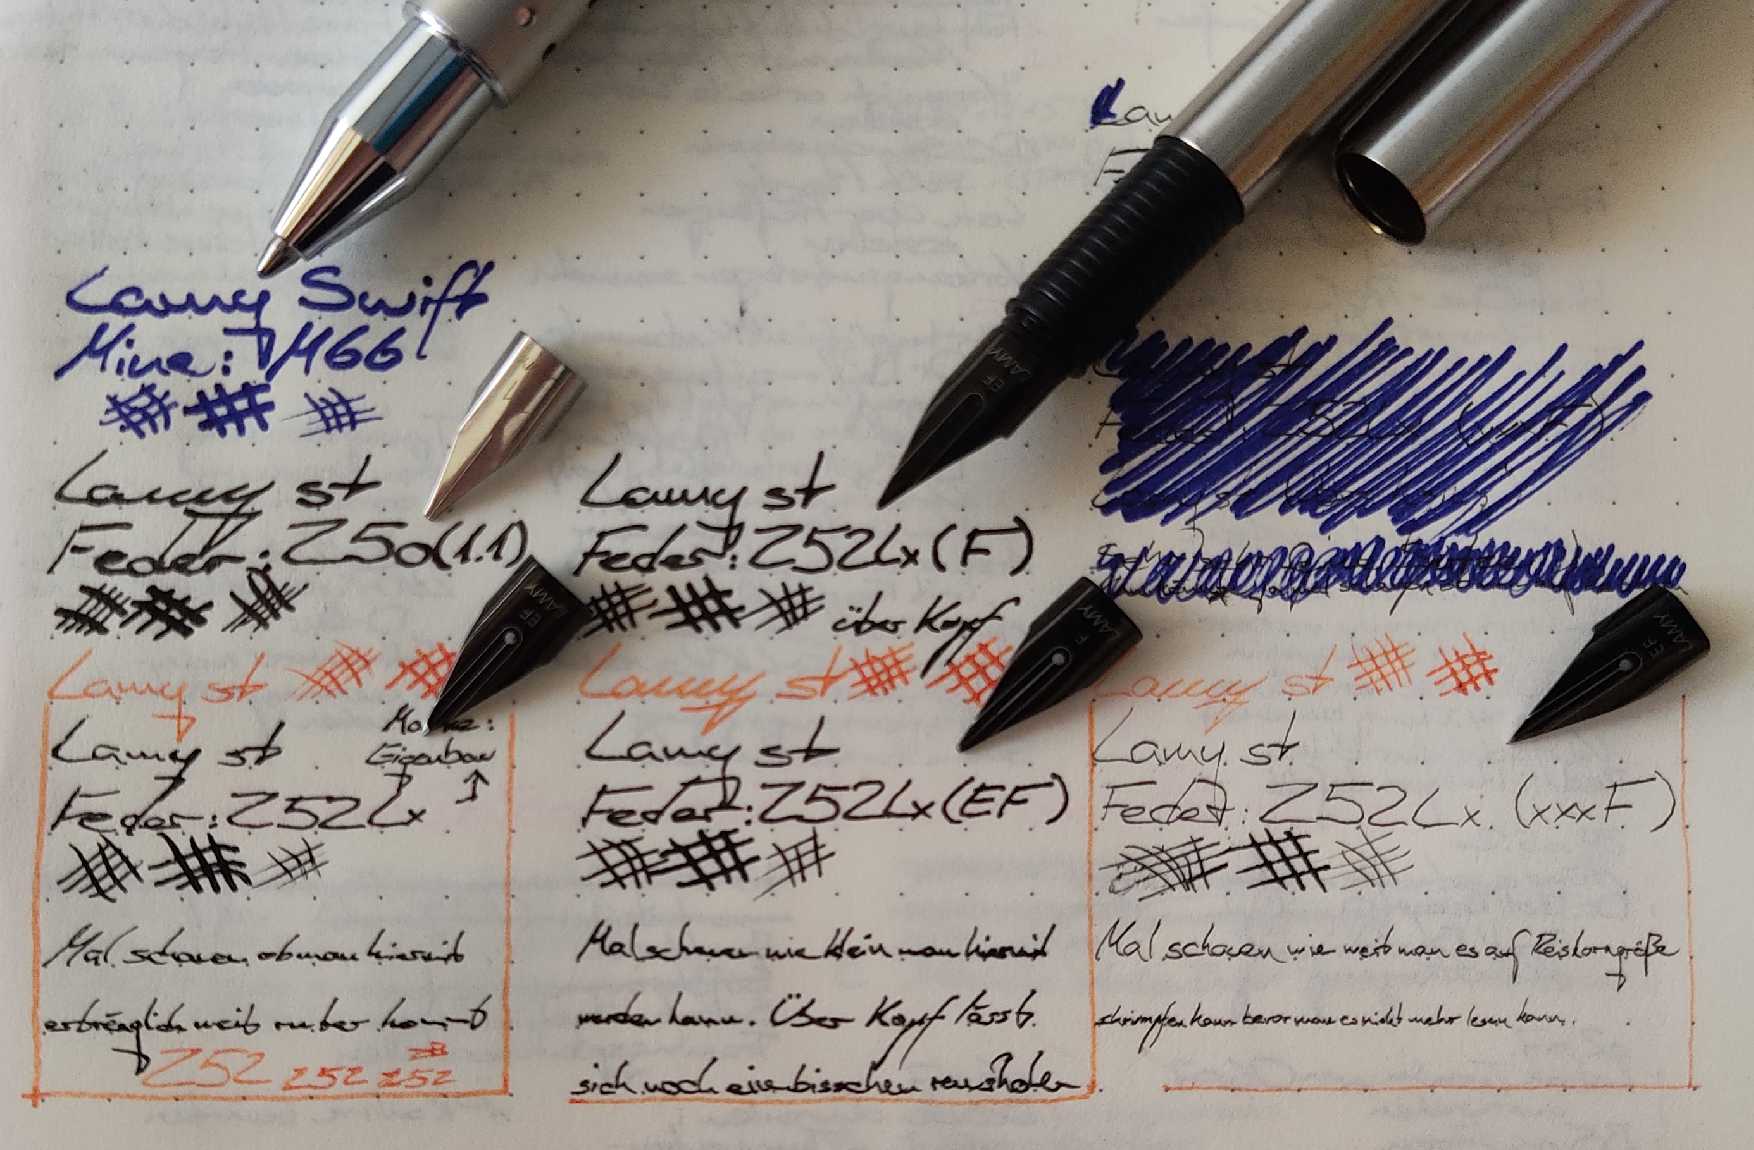 Lamy Swift
Mine: M66
Lamy st
Feder: Z50(1.1)
Lamy st
Lamy st
Feder: Z52Lx
Eigenbau
Mal schauen ob man hiermit
erträglich weit runter kommt
Z52 Z52 Z52
Lamy st
Feder: Z52Lx (F)
über Kopf
Lamy st
Lamy st
Feder: Z52Lx (EF)
Mal schauen wie klein man hiermit
werden kann. Über Kopf lässt
sich noch ein bisschen rausholen
Lamy st
Lamy st
Feder: Z52Lx (xxxF)
Mal schauen wie weit man es auf Reiskorngröße
schrumpfen kann bevor man es nicht mehr lesen kann.
EF LAMY
EF LAMY
F LAMY
EF LAMY